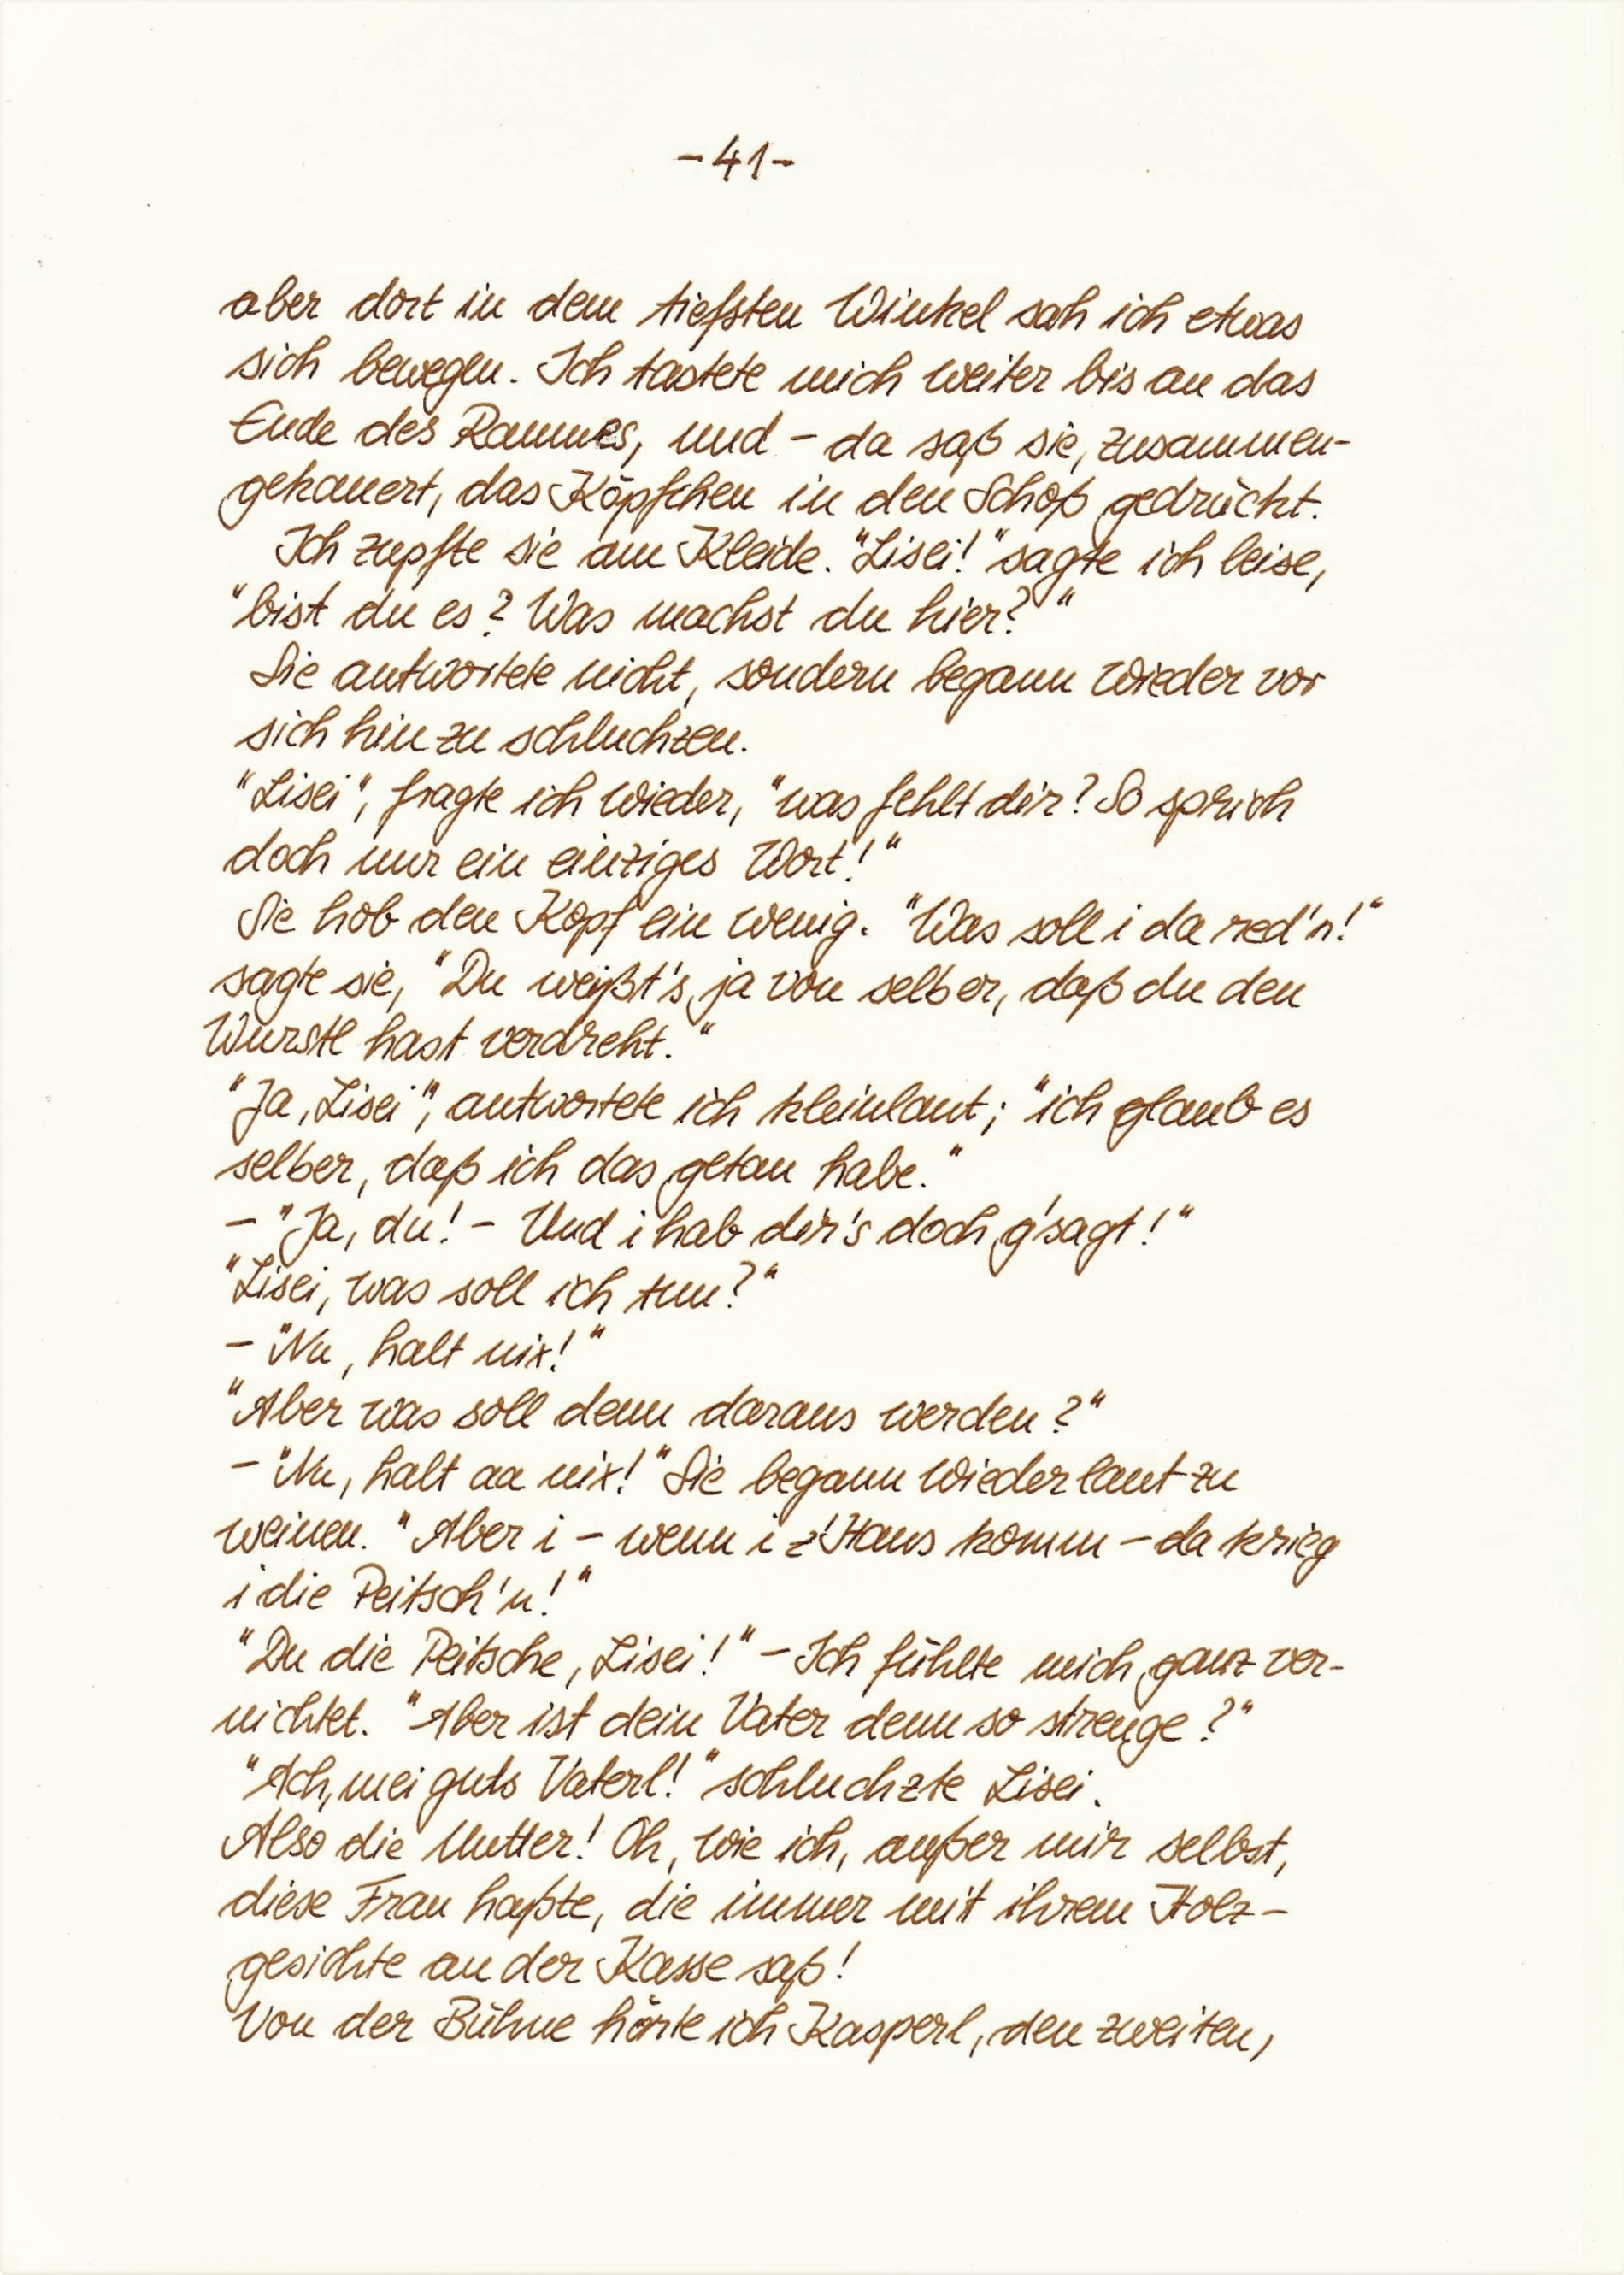 -41-
aber dort in dem tiefsten Winkel sah ich etwas
sich bewegen. Ich tastete mich weiter bis an das
Ende des Raumes, und - da saß sie, zusammen-
gekauert, das Köpfchen in den Schoß gedrückt.
Ich zupfte sie am Kleide. "Lisei!" sagte ich leise,
"bist du es? Was machst du hier?"
Sie antwortete nicht, sondern begann wieder vor
sich hin zu schluchzen.
"Lisei", fragte ich wieder, "was fehlt dir? So sprich
doch nur ein einziges Wort!"
Sie hob den Kopf ein wenig. "Was soll i da red'n!"
sagte sie, "Du weißt's ja von selber, daß du den
Wurstl hast verdreht."
"Ja, Lisei", antwortete ich kleinlaut; "ich glaub es
selber, daß ich das getan habe."
- "Ja, du! - Und i hab dir's doch g'sagt!"
"Lisei, was soll ich tun?"
- "Nu, halt nix!"
"Aber was soll denn daraus werden?"
- "Nu, halt aa nix!" Sie begann wieder laut zu
weinen. "Aber i - wenn i z'Haus komm - da krieg
i die Peitsch'n!"
"Du die Peitsche, Lisei!" - Ich fühlte mich ganz ver-
nichtet. "Aber ist dein Vater denn so strenge?"
"Ach, mei guts Vaterl!" schluchzte Lisei.
Also die Mutter! Oh, wie ich, außer mir selbst,
diese Frau haßte, die immer mit ihrem Holz-
gesichte an der Kasse saß!
Von der Bühne hörte ich Kasperl, den zweiten,